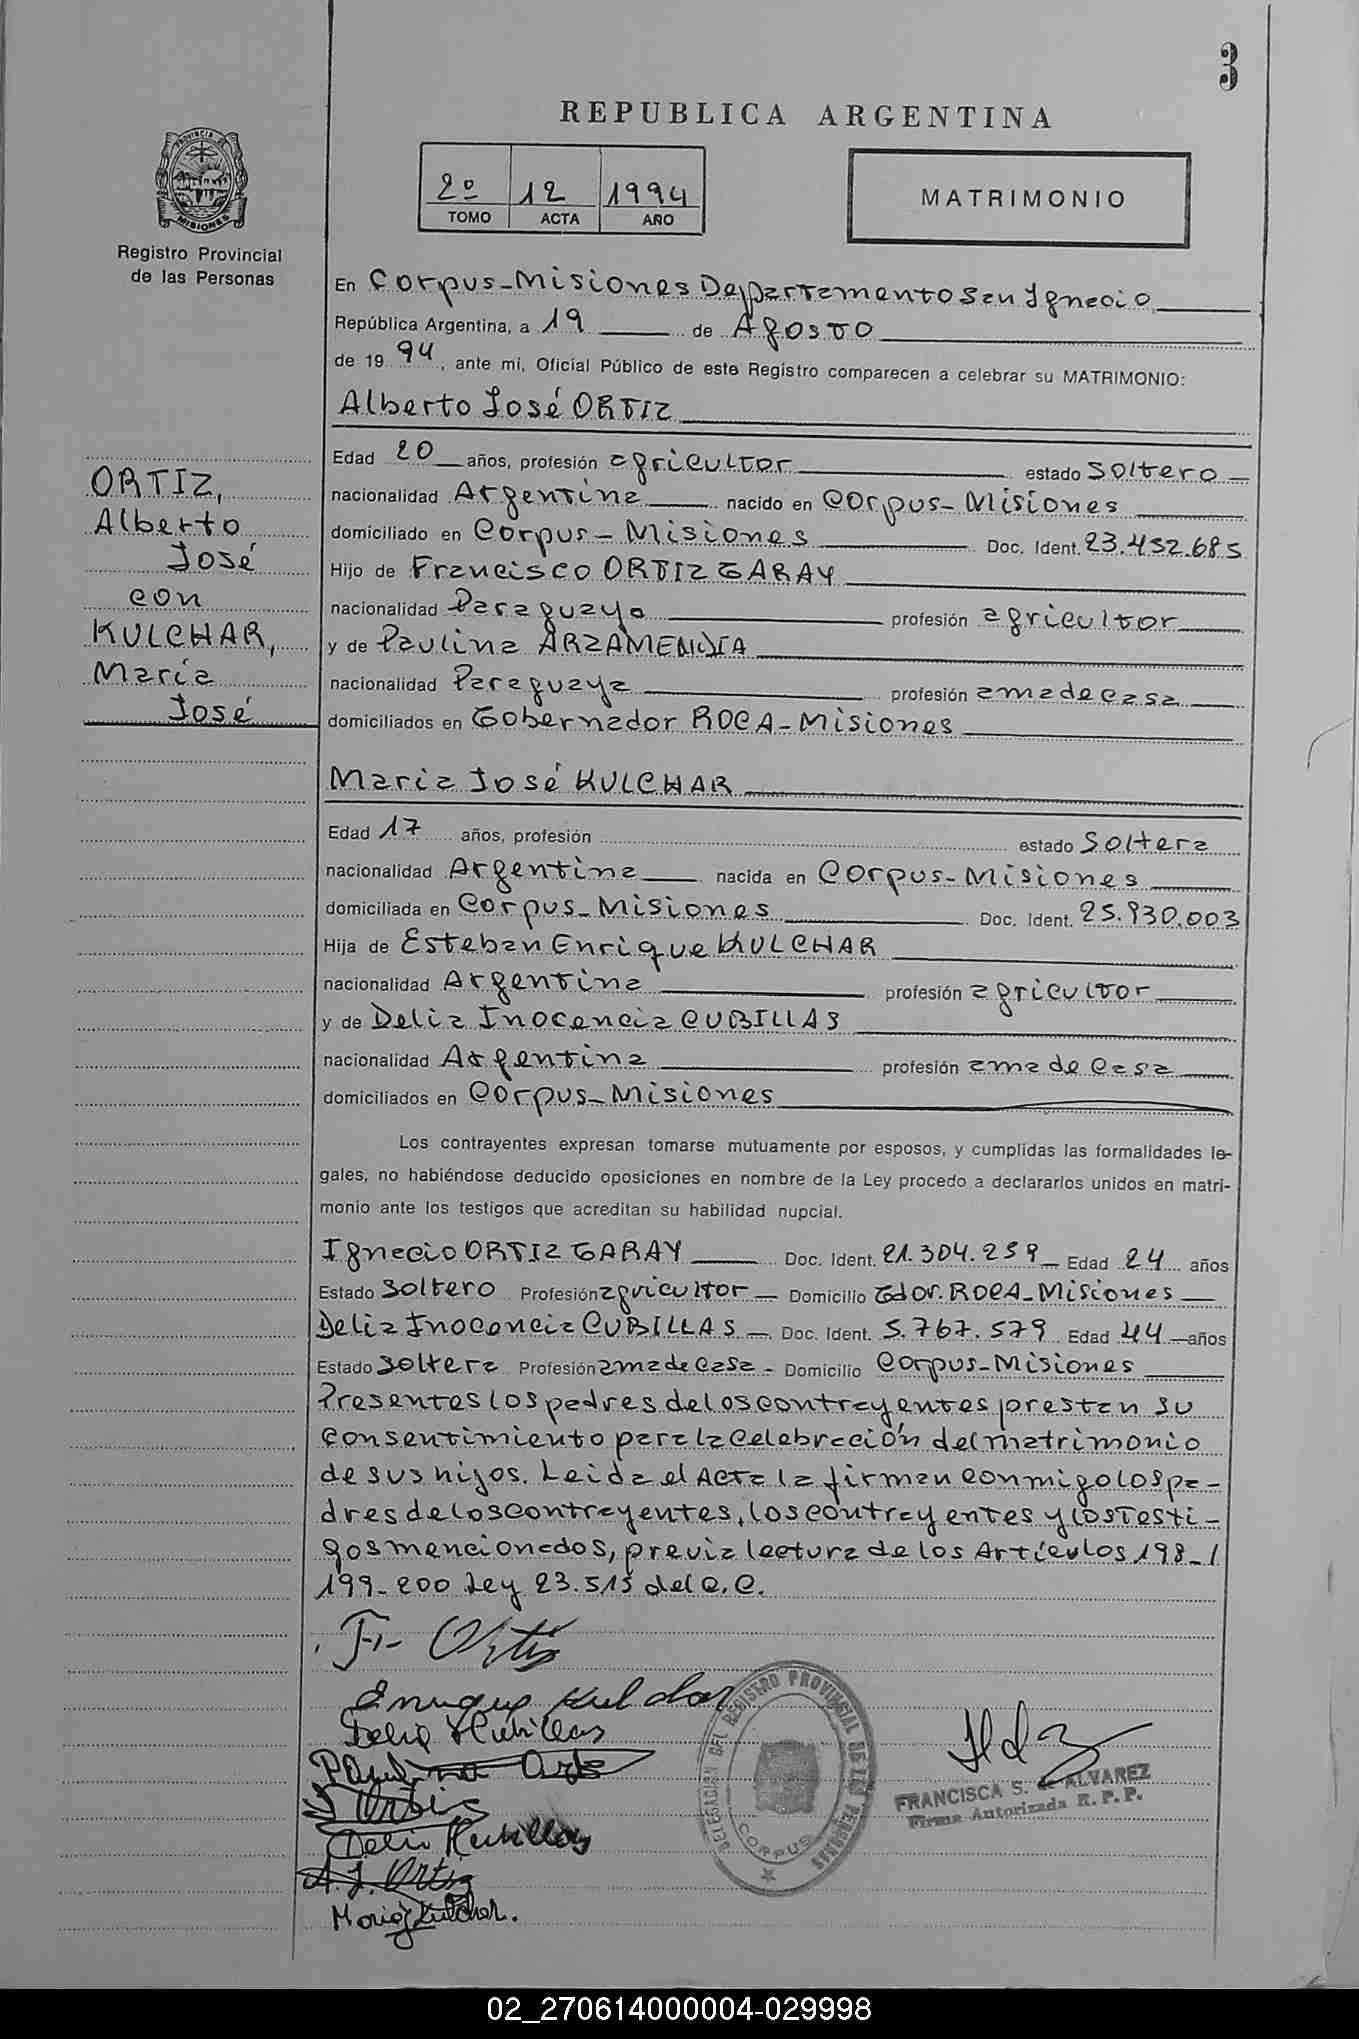 3
REPUBLICA ARGENTINA
PROVINCIA DE MISIONES
Registro Provincial
de las Personas
2º 12 1994
TOMO ACTA AÑO
MATRIMONIO
En Corpus-Misiones Departamento San Ignacio
República Argentina, a 19 de Agosto
de 19 94, ante mi, Oficial Público de este Registro comparecen a celebrar su MATRIMONIO:
Alberto José ORTIZ
Edad 20 años, profesión agricultor estado soltero
nacionalidad Argentina nacido en Corpus-Misiones
domiciliado en Corpus-Misiones Doc. Ident. 23.452.685
Hijo de Francisco ORTIZ GARAY
nacionalidad Paraguayo profesión agricultor
y de Paulina ARZAMENDIA
nacionalidad Paraguaya profesión ama de casa
domiciliados en Gobernador ROCA-Misiones
ORTIZ,
Alberto
José
con
KULCHAR,
María
José
María José KULCHAR
Edad 17 años, profesión estado soltera
nacionalidad Argentina nacida en Corpus-Misiones
domiciliada en Corpus-Misiones Doc. Ident. 25.930.003
Hija de Esteban Enrique KULCHAR
nacionalidad Argentina profesión agricultor
y de Delia Inocencia CUBILLAS
nacionalidad Argentina profesión ama de casa
domiciliados en Corpus-Misiones
Los contrayentes expresan tomarse mutuamente por esposos, y cumplidas las formalidades le-
gales, no habiéndose deducido oposiciones en nombre de la Ley procedo a declararlos unidos en matri-
monio ante los testigos que acreditan su habilidad nupcial.
Ignacio ORTIZ GARAY Doc. Ident. 21.304.259 Edad 24 años
Estado soltero Profesión agricultor Domicilio Gdor. ROCA-Misiones
Delia Inocencia CUBILLAS Doc. Ident. 5.767.579 Edad 44 años
Estado soltera Profesión ama de casa Domicilio Corpus-Misiones
Presentes los padres de los contrayentes prestan su
consentimiento para la celebración del matrimonio
de sus hijos. Leida el Acta la firman conmigo los pa-
dres de los contrayentes, los contrayentes y los testi-
gos mencionados, previa lectura de los Artículos 198-/
199-200 Ley 23.515 del C.C.
Fr Ortiz
Enrique Kulchar
Delia Kubillas
Paulina Arts
I Ortiz
Delia Kubillas
A.J. Ortiz
Maria J Kulchar.
DELEGACION DEL REGISTRO PROVINCIAL DE LAS PERSONAS
CORPUS
FRANCISCA S. de ALVAREZ
Firma Autorizada R. P. P.
02_270614000004-029998